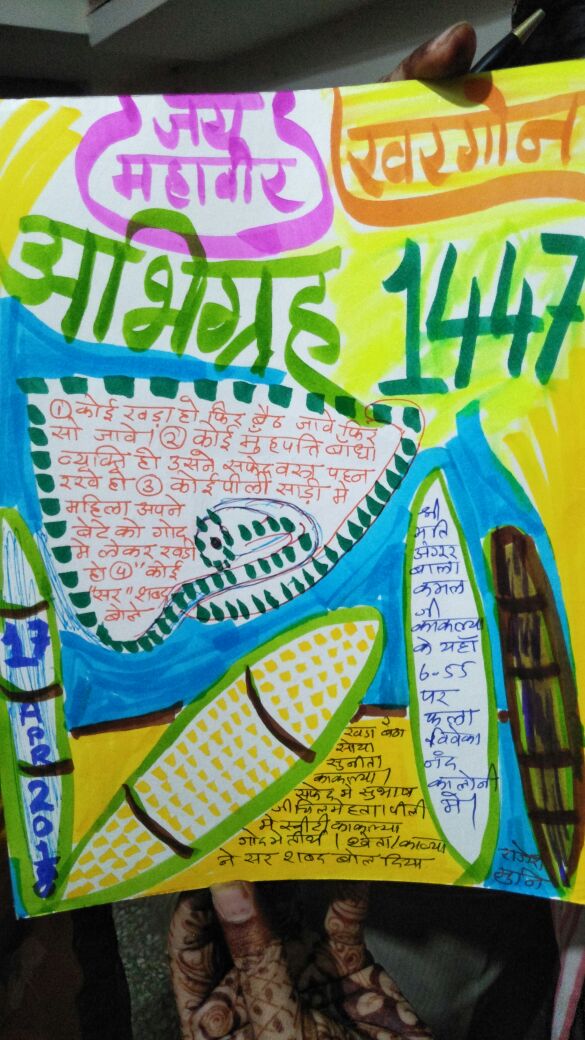 जय
महावीर
खरगोन
अभिग्रह 1447
① कोई खड़ा हो फिर बैठ जावे फिर
सो जावे। ② कोई मुहपत्ति बाँधा
व्यक्ति हो उसने सफेद वस्त्र पहन
रखे हो ③ कोई पीली साड़ी में
महिला अपने
बेटे को गोद
में लेकर खड़ी
हो ④ "कोई
"सर" शब्द
बोले
17
APR 2018
श्री
मति
अंगुर
बाला
कमल
जी
काकल्या
के यहाँ
6-55
पर
फला
विवेका
नंद
कालोनी
में।
खड़ा बैठा
सोया
सुनीता
काकल्या।
सफेद में सुभाष
पीली
में स्वीटी काकल्या
गोद में तीर्थ। श्वेता/काव्या
ने सर शब्द बोल दिया
राजेश
मुनि